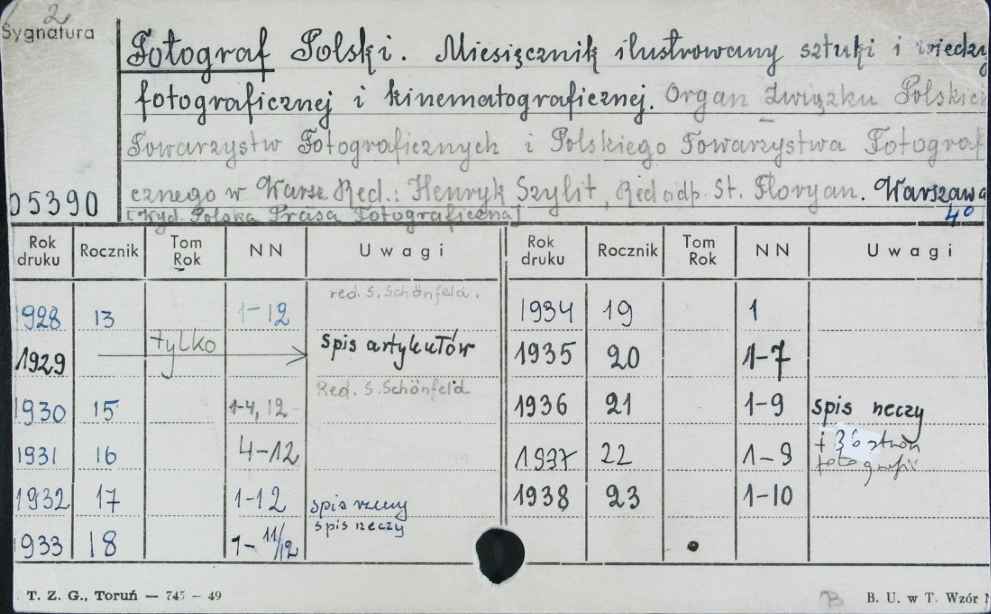 2
Sygnatura
Fotograf Polski. Miesięcznik ilustrowany sztuki i wiedzy
fotograficznej i kinematograficznej. Organ Związku Polskich
Towarzystw Fotograficznych i Polskiego Towarzystwa Fotografi
cznego w Warsz. Red.: Henryk Szylit, Red. odp. St. Floryan. Warszawa
05390
[Wyd. Polska Prasa Fotograficzna] 4°
Rok druku Rocznik Tom Rok NN Uwagi Rok druku Rocznik Tom Rok NN Uwagi
red. S. Schönfeld.
1928 13 1-12 1934 19 1
1929 tylko spis artykułów 1935 20 1-7
Red. S. Schönfeld
1930 15 1-4, 12 1936 21 1-9 spis rzeczy
1931 16 4-12 1937 22 1-9 + 36 stron
fotografii
1932 17 1-12 spis rzeczy 1938 23 1-10
spis rzeczy
933 18 1-11/12
T. Z. G., Toruń — 745 — 49 B B. U. w T. Wzór